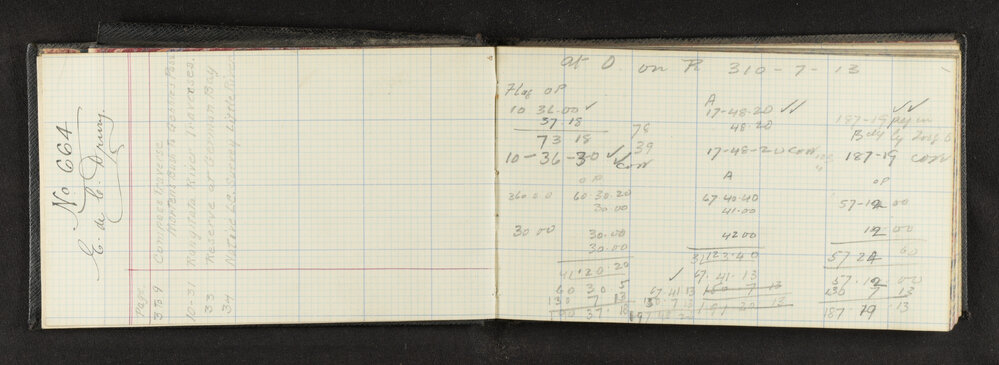 No 664
C. de C. Drury.
Page
3 to 9 Compass Traverse
10-31 Rangitata River Traverses.
33 Reserve at German Bay
34 Native L.C. Survey Little River
at D. on R 310-7-13
1
Flag OP
10 36.00 ✓
37.18
73.18
78
39
10-36-30 ✓✓
con
A
17-48-20 ✓✓
48.20
17-48-20 con
✓✓
187-19
187-19 con
OP
360 00 60 30.20
30.00
30 00 30.00
30.00
41.20.20
60 30 5
130 7 13
190 37.18
A
67 40.40
41.00
42.00
3)123.40
✓ 67.41.13
67.41.13 180 7 13
130.7.13 191 20 13
197 48 26
OP
57-12 00
12.00
57.24 00
57.12 00
130 7 13
187.19.13